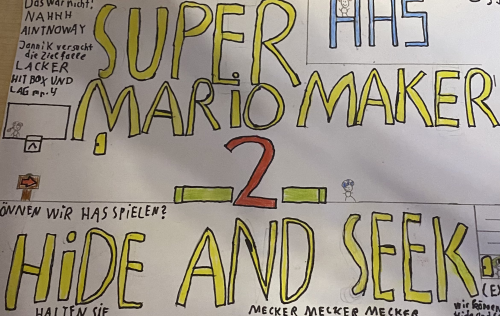 Das war nicht!
NAHHH
AINTNOWAY
Jannik versucht
die Zielfalle
LACKER
HITBOX UND
LAG mp.4
HAS
SUPER
MARiO MAKER
2
ÖNNEN WIR HAS SPIELEN?
HiDE AND SEEK
HALTEN SIE
MECKER MECKER MECKER
(E)
wir können